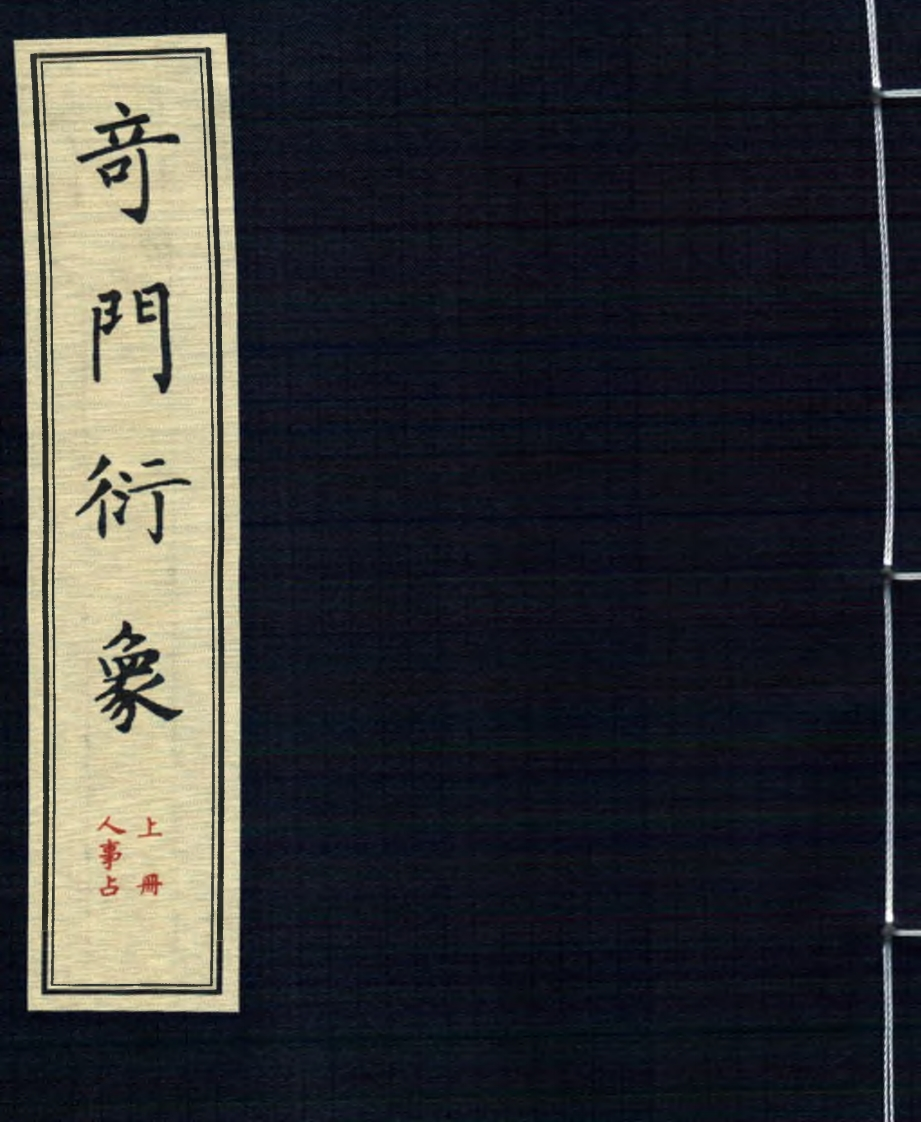 竒門衍象
上冊
人事占